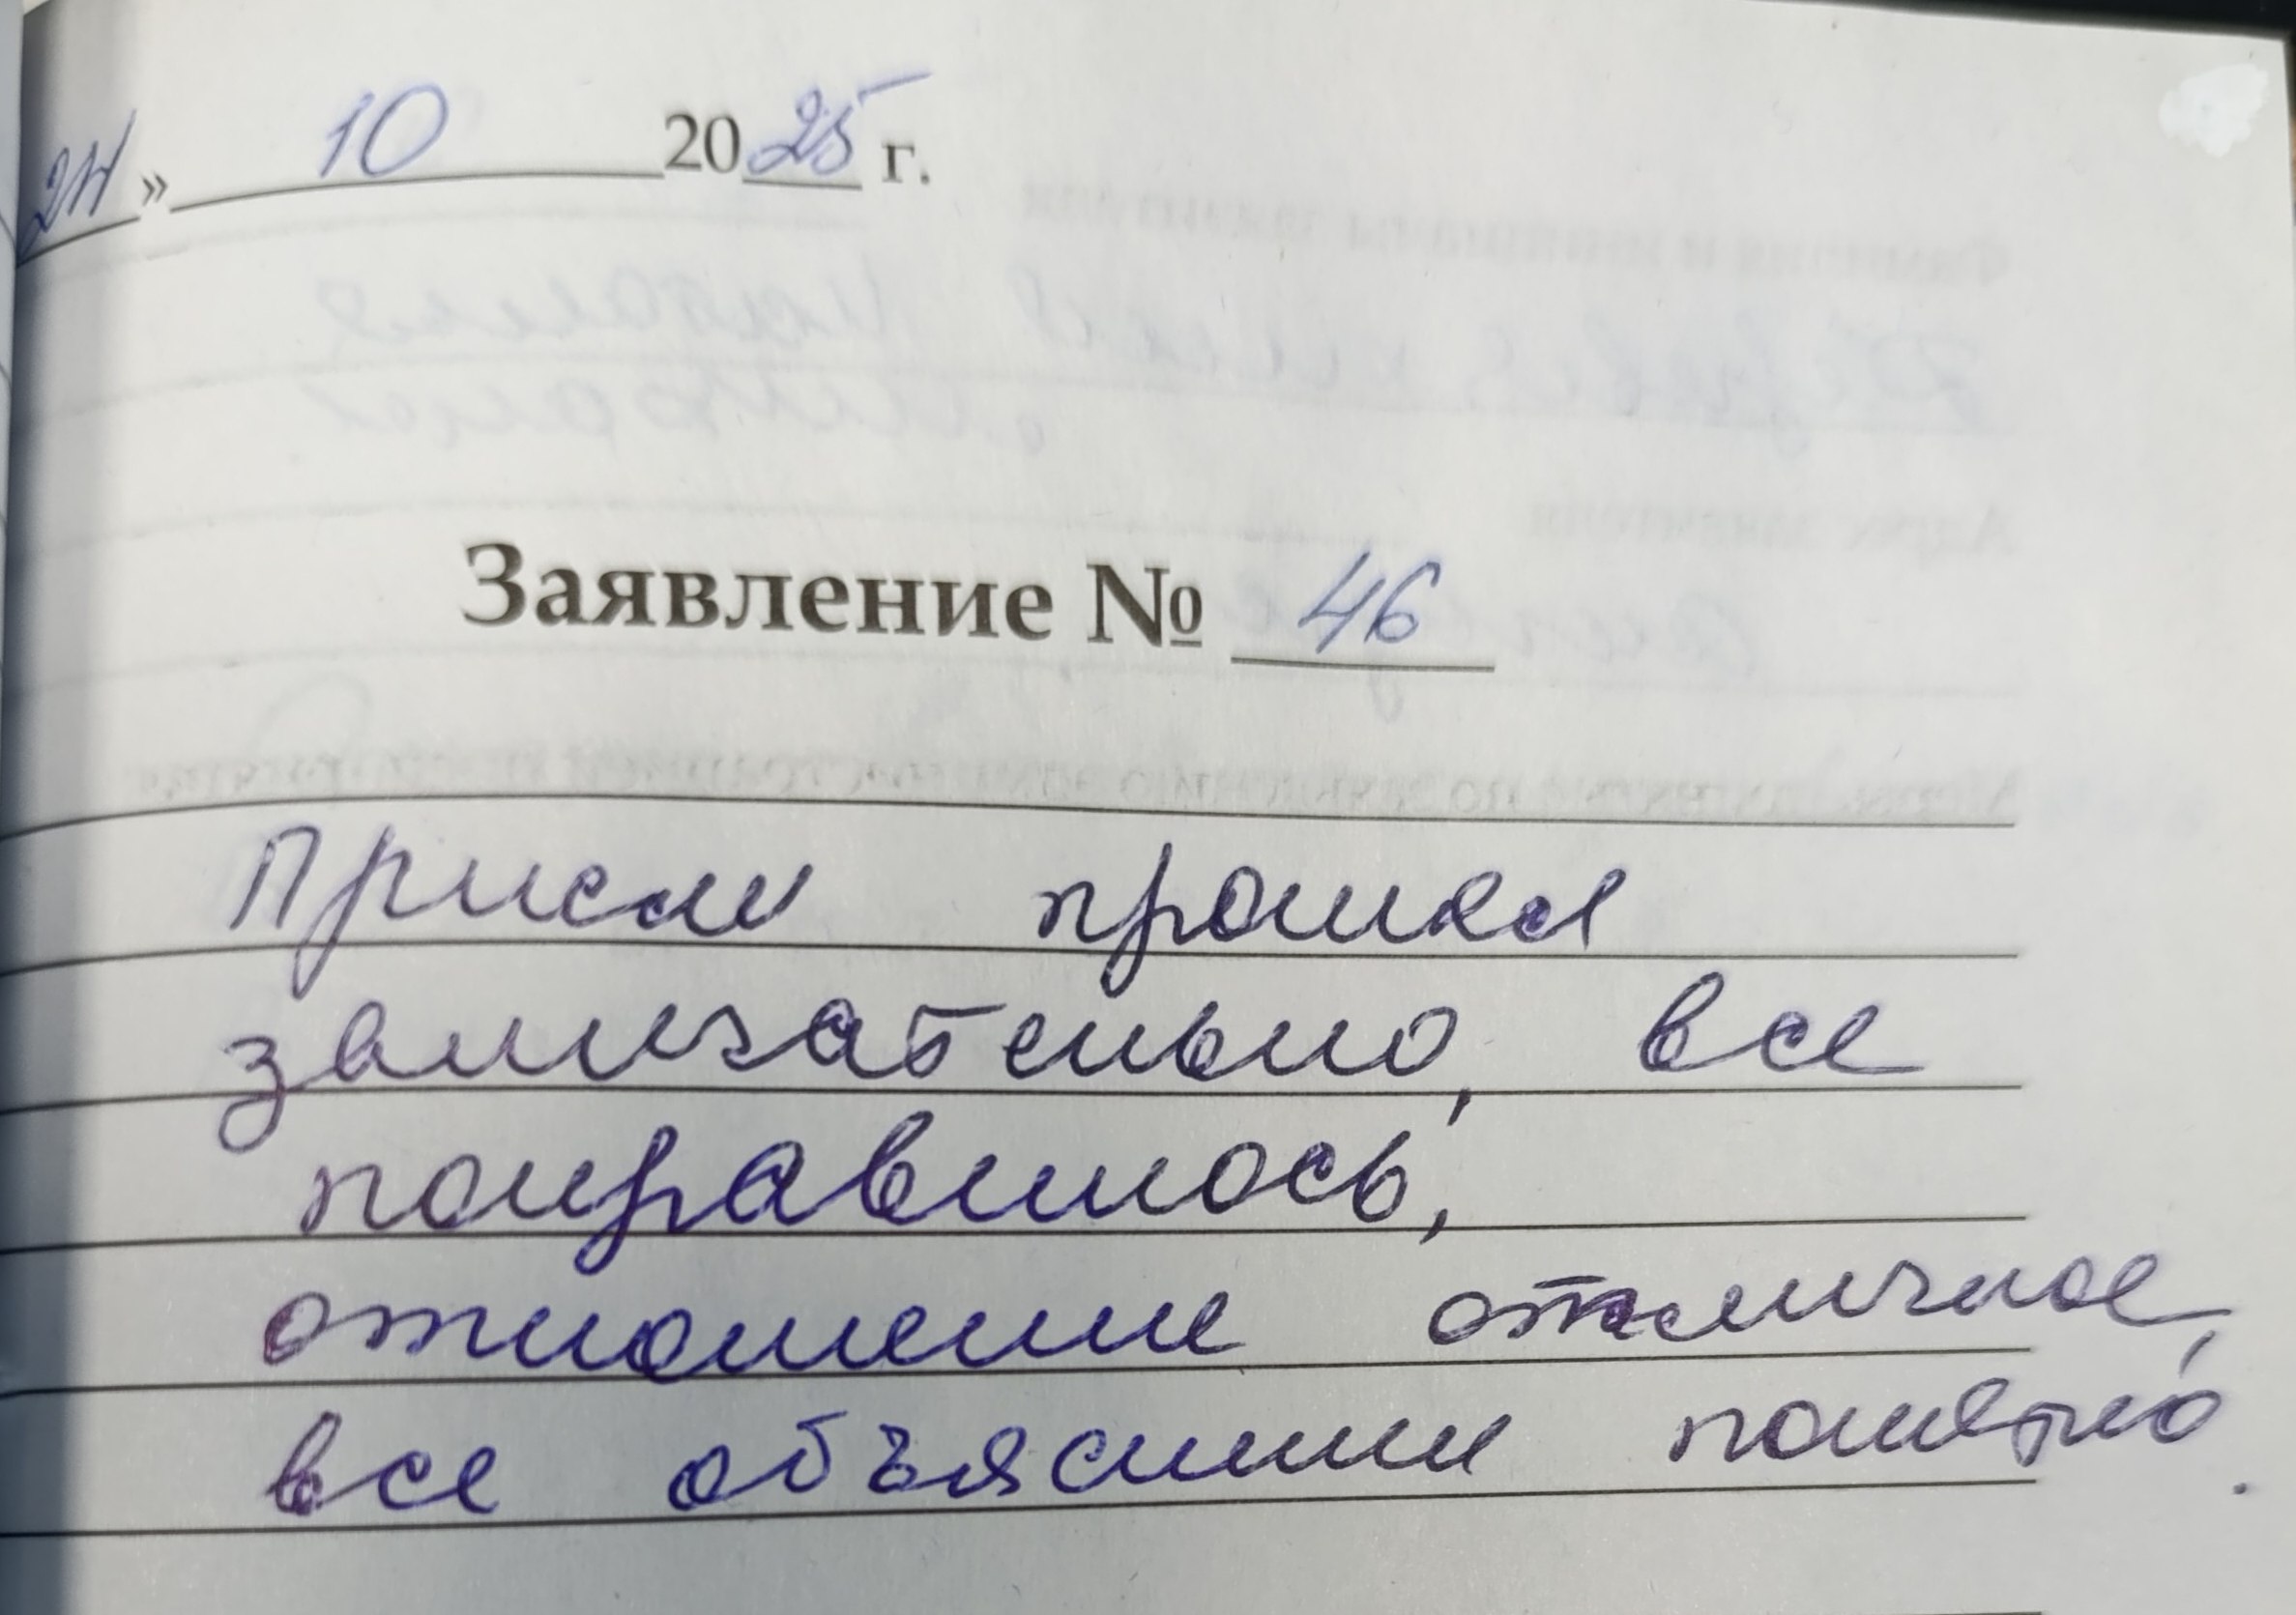 24» 10 2025 г.
Заявление № 46
Прием прошел
замичательно, все
понравилось,
отношение отличное,
все объяснили понятно.